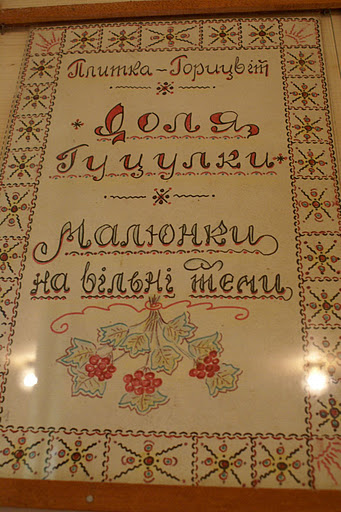 Плитка-Горицвіт
Доля
Гуцулки
Малюнки
на вільні теми